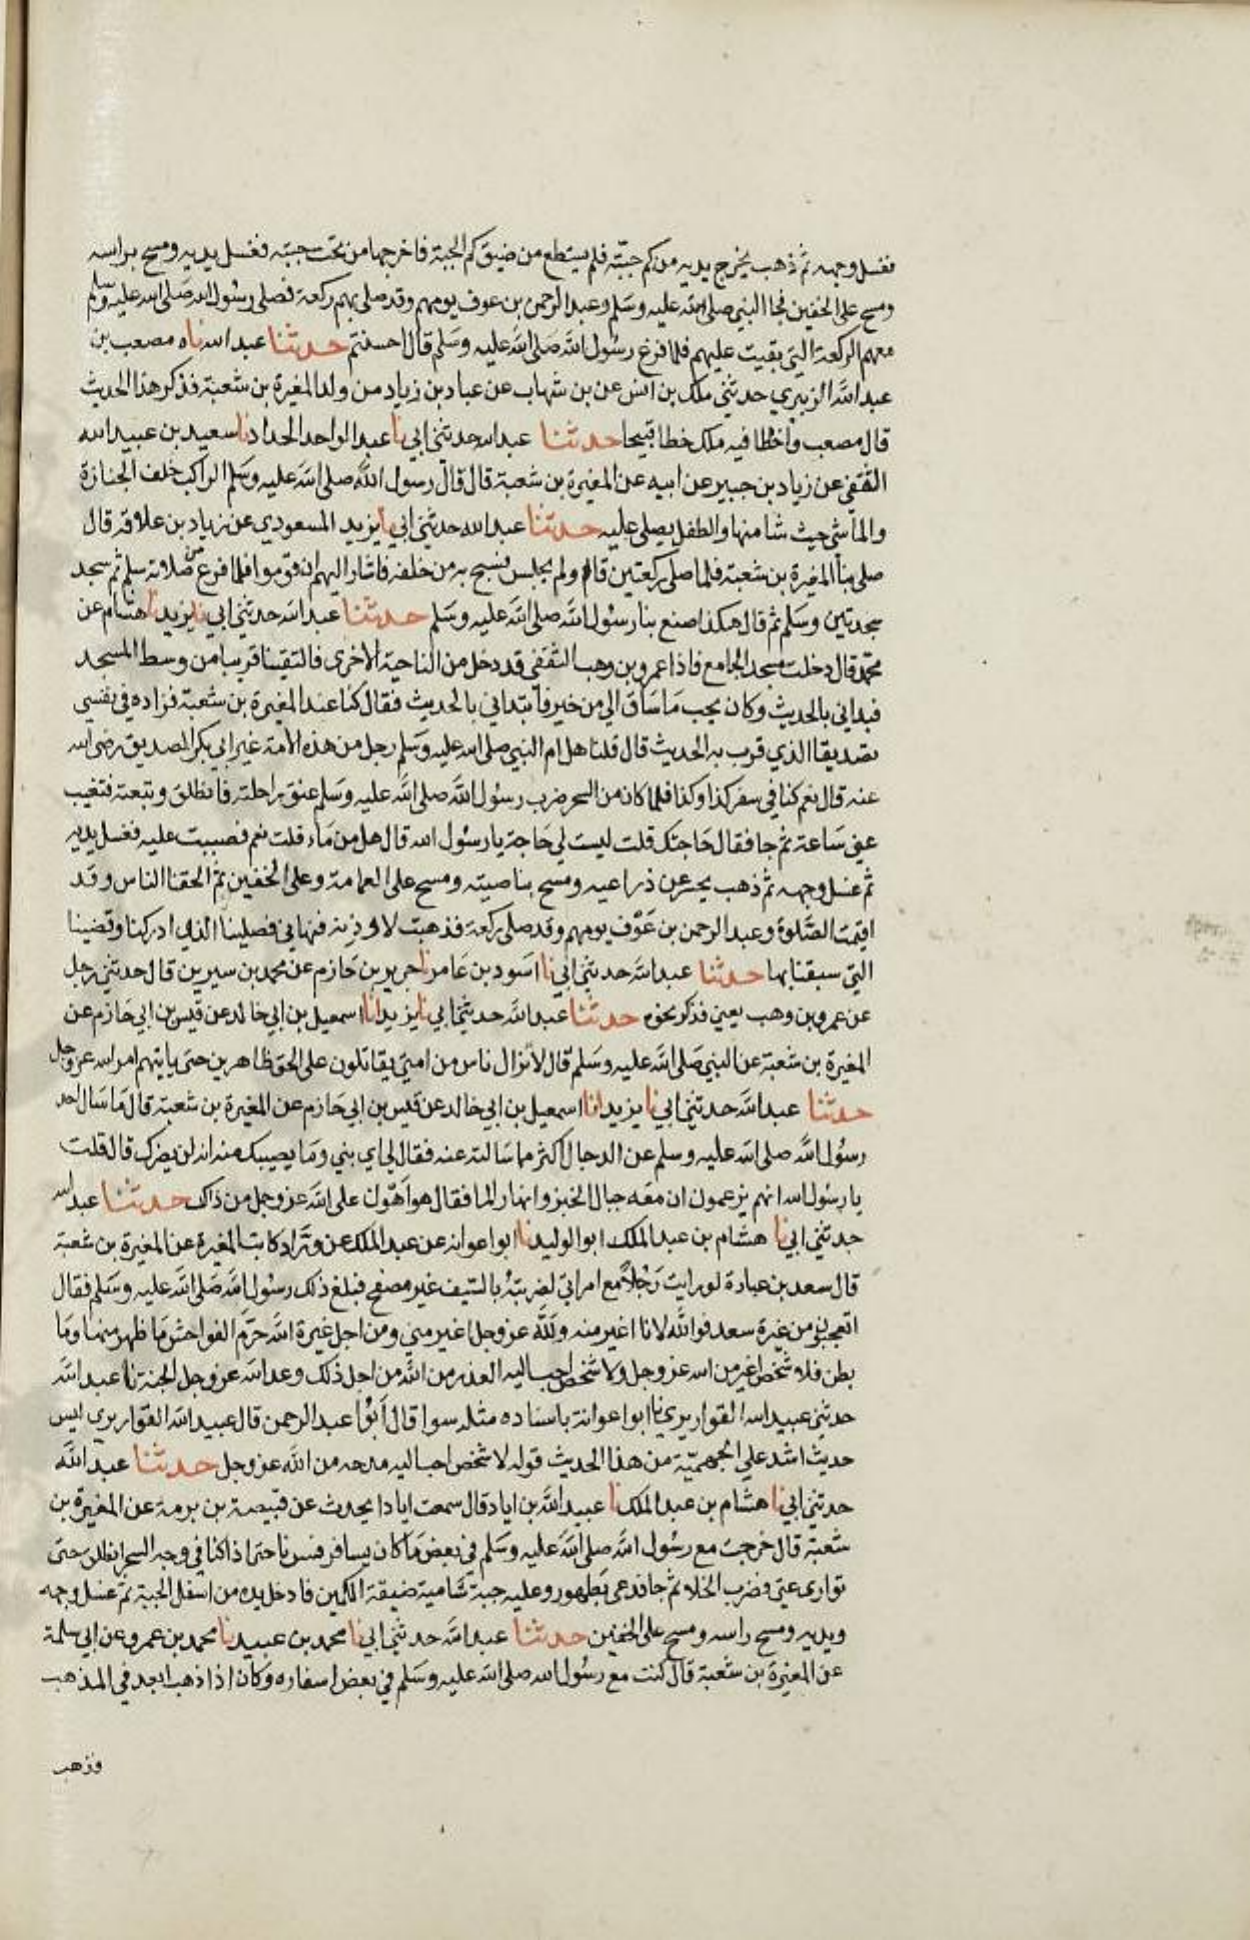 فغسل وجهه ثم ذهب يخرج يديه من كم جبته فلم يستطع من ضيق كم الجبة فاخرجها من تحت جبته فغسل يديه ومسح براسه
ومسح على الخفين فجا النبي صلى الله عليه وسلم وعبد الرحمن بن عوف يومهم وقد صلى بهم ركعة فصلى رسول الله صلى الله عليه وسلم
معهم الركعة التي بقيت عليهم فلما فرغ رسول الله صلى الله عليه وسلم قال احسنتم حدثنا عبد الله ناه مصعب بن
عبد الله الزبيري حدثني ملك بن انس عن بن شهاب عن عباد بن زياد من ولد المغيرة بن شعبة فذكر هذا الحديث
قال مصعب واخطا فيه ملك خطا قبيحا حدثنا عبد الله حدثني ابي نا عبد الواحد الحداد نا سعيد بن عبيد الله
الثقفي عن زياد بن جبير عن ابيه عن المغيرة بن شعبة قال قال رسول الله صلى الله عليه وسلم الراكب خلف الجنازة
والماشي حيث شا منها والطفل يصلى عليه حدثنا عبد الله حدثني ابي نا يزيد المسعودي عن زياد بن علاقه قال
صلى بنا المغيرة بن شعبة فلما صلى ركعتين قام ولم يجلس فسبح به من خلفه فاشار اليهم ان قوموا فلما فرغ من صلاته سلم ثم سجد
سجدتين وسلم ثم قال هكذا صنع بنا رسول الله صلى الله عليه وسلم حدثنا عبد الله حدثني ابي نا يزيد نا هشام عن
محمد قال دخلت مسجد الجامع فاذا عمرو بن وهب الثقفي قد دخل من الناحية الاخرى فالتقينا قريبا من وسط المسجد
فبداني بالحديث وكان يحب ما ساق الي من خير فابتداني بالحديث فقال كنا عند المغيرة بن شعبة فزاده في نفسي
تصديقا الذي قرب به الحديث قال قلنا هل ام النبي صلى الله عليه وسلم رجل من هذه الامة غير ابي بكر الصديق رضي الله
عنه قال نعم كنا في سفر كذا وكذا فلما كان من السحر ضرب رسول الله صلى الله عليه وسلم عنق راحلته فانطلق وتبعته فتغيب
عني ساعة ثم جا فقال حاجتك قلت ليست لي حاجة يا رسول الله قال هل من ماء قلت نعم فصببت عليه فغسل يديه
ثم غسل وجهه ثم ذهب يحسر عن ذراعيه ومسح بناصيته ومسح على العمامة وعلى الخفين ثم الحقنا الناس وقد
اقيمت الصلوة وعبد الرحمن بن عوف يومهم وقد صلى ركعة فذهبت لاوذنه فنهاني فصلينا الذي ادركنا وقضينا
التي سبقنا بها حدثنا عبد الله حدثني ابي نا اسود بن عامر نا جرير بن حازم عن محمد بن سيرين قال حدثني رجل
عن عمرو بن وهب يعني فذكر نحوه حدثنا عبد الله حدثني ابي نا يزيد انا اسمعيل بن ابي خالد عن قيس بن ابي حازم عن
المغيرة بن شعبة عن النبي صلى الله عليه وسلم قال لا تزال ناس من امتي يقاتلون على الحق ظاهرين حتى ياتيهم امر الله عز وجل
حدثنا عبد الله حدثني ابي نا يزيد انا اسمعيل بن ابي خالد عن قيس بن ابي حازم عن المغيرة بن شعبة قال ما سال احد
رسول الله صلى الله عليه وسلم عن الدجال اكثر مما سالته عنه فقال لي اي بني وما يصيبك منه انه لن يضرك قال قلت
يا رسول الله انهم يزعمون ان معه جبال الخبز وانهار الما فقال هو اهون على الله عز وجل من ذاك حدثنا عبد الله
حدثني ابي نا هشام بن عبد الملك ابو الوليد نا ابو اعوانه عن عبد الملك عن وراد كاتب المغيرة عن المغيرة بن شعبة
قال سعد بن عبادة لو رايت رجلا مع امراتي لضربته بالسيف غير مصفح فبلغ ذلك رسول الله صلى الله عليه وسلم فقال
اتعجبون من غيرة سعد فوالله لانا اغير منه ولله عز وجل اغير مني ومن اجل غيرة الله حرم الفواحش ما ظهر منها وما
بطن فلا شخص اغير من الله عز وجل ولا شخص احب اليه العذر من الله من اجل ذلك وعد الله عز وجل الجنة نا عبد الله
حدثني عبيد الله القواريري نا ابو اعوانة باسناده مثله سوا قال ابو عبد الرحمن قال عبيد الله القواريري ليس
حديث اشد على الجهمية من هذا الحديث قوله لا شخص احب اليه مدحه من الله عز وجل حدثنا عبد الله
حدثني ابي نا هشام بن عبد الملك نا عبيد الله بن اياد قال سمعت ايادا يحدث عن قبيصة بن برمة عن المغيرة بن
شعبة قال خرجت مع رسول الله صلى الله عليه وسلم في بعض ما كان يسافر فسرنا حتى اذا كنا في وجه السحر انطلق حتى
توارى عني وضرب الخلا ثم جا فدعى بطهور وعليه جبة شامية ضيقة الكمين فادخل يده من اسفل الجبة ثم غسل وجهه
ويديه ومسح راسه ومسح على الخفين حدثنا عبد الله حدثني ابي نا محمد بن عبيد نا محمد بن عمرو عن ابي سلمة
عن المغيرة بن شعبة قال كنت مع رسول الله صلى الله عليه وسلم في بعض اسفاره وكان اذا ذهب ابعد في المذهب
وذهب